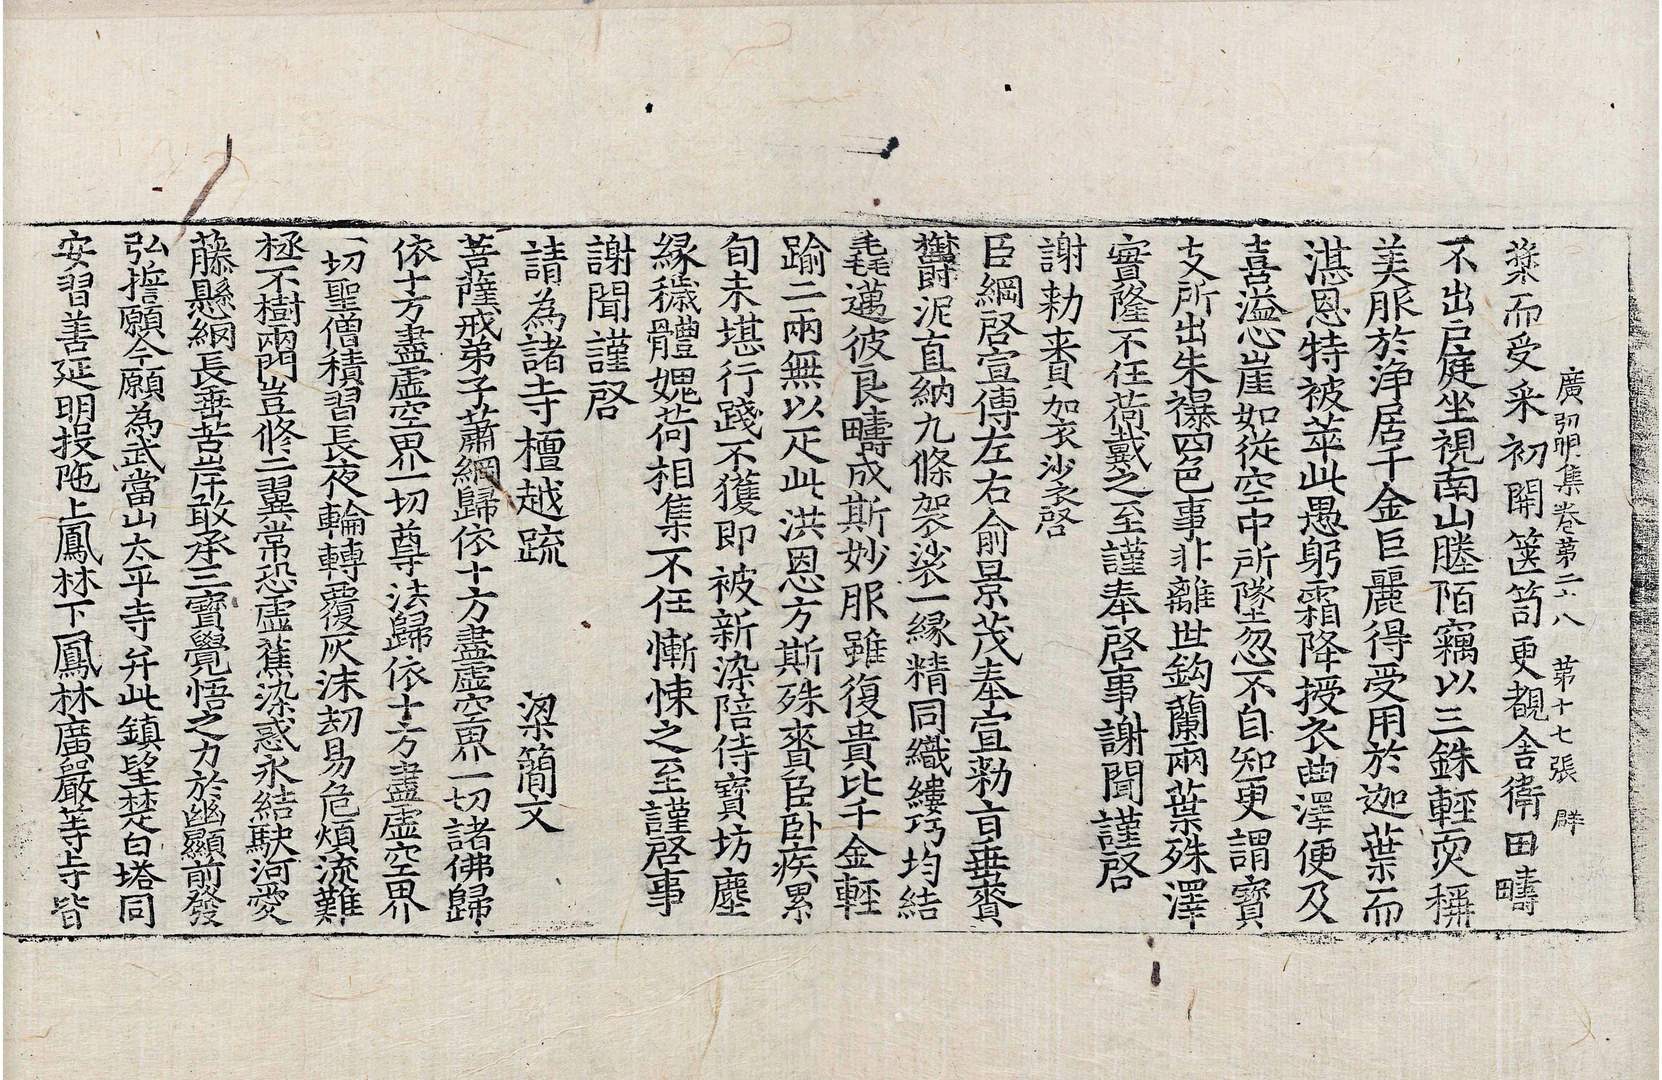 廣弘明集卷第二十八　第十七張　群
蘂而受采初開篋笥更覩舍衛田疇
不出戶庭坐視南山塍陌竊以三銖輕耎稱
美服於淨居千金巨麗得受用於迦葉而
湛恩特被萃此愚躬霜降授衣曲澤便及
喜溢心崖如從空中所墜忽不自知更謂寶
支所出朱襮四色事非離世鈎蘭兩葉殊澤
實隆不任荷戴之至謹奉啓事謝聞謹啓
謝勑賚加衣沙衣啓
臣綱啓宣傳左右俞景茂奉宣勑旨垂賚
欝泥直納九條袈裟一緣精同織縷巧均結
毳邁彼良疇成斯妙服雖復貴比千金輕
踰二兩無以疋此洪恩方斯殊賚臣卧疾累
旬未堪行踐不獲即被新染陪侍寶坊塵
緣穢體媿荷相集不任慚悚之至謹啓事
謝聞謹啓
請為諸寺檀越疏　梁簡文
菩薩戒弟子蕭綱歸依十方盡虛空界一切諸佛歸
依十方盡虛空界一切尊法歸依十方盡虛空界
一切聖僧積習長夜輪轉覆灰沫刼易危煩流難
極不樹兩門豈修二翼常恐虛蕉染惑永結駃河愛
藤懸網長垂苦岸敢承三寶覺悟之力於幽顯前發
弘誓願今願為武當山太平寺并此鎮望楚白塔同
安習善延明投陁上鳳林下鳳林廣嚴等寺皆